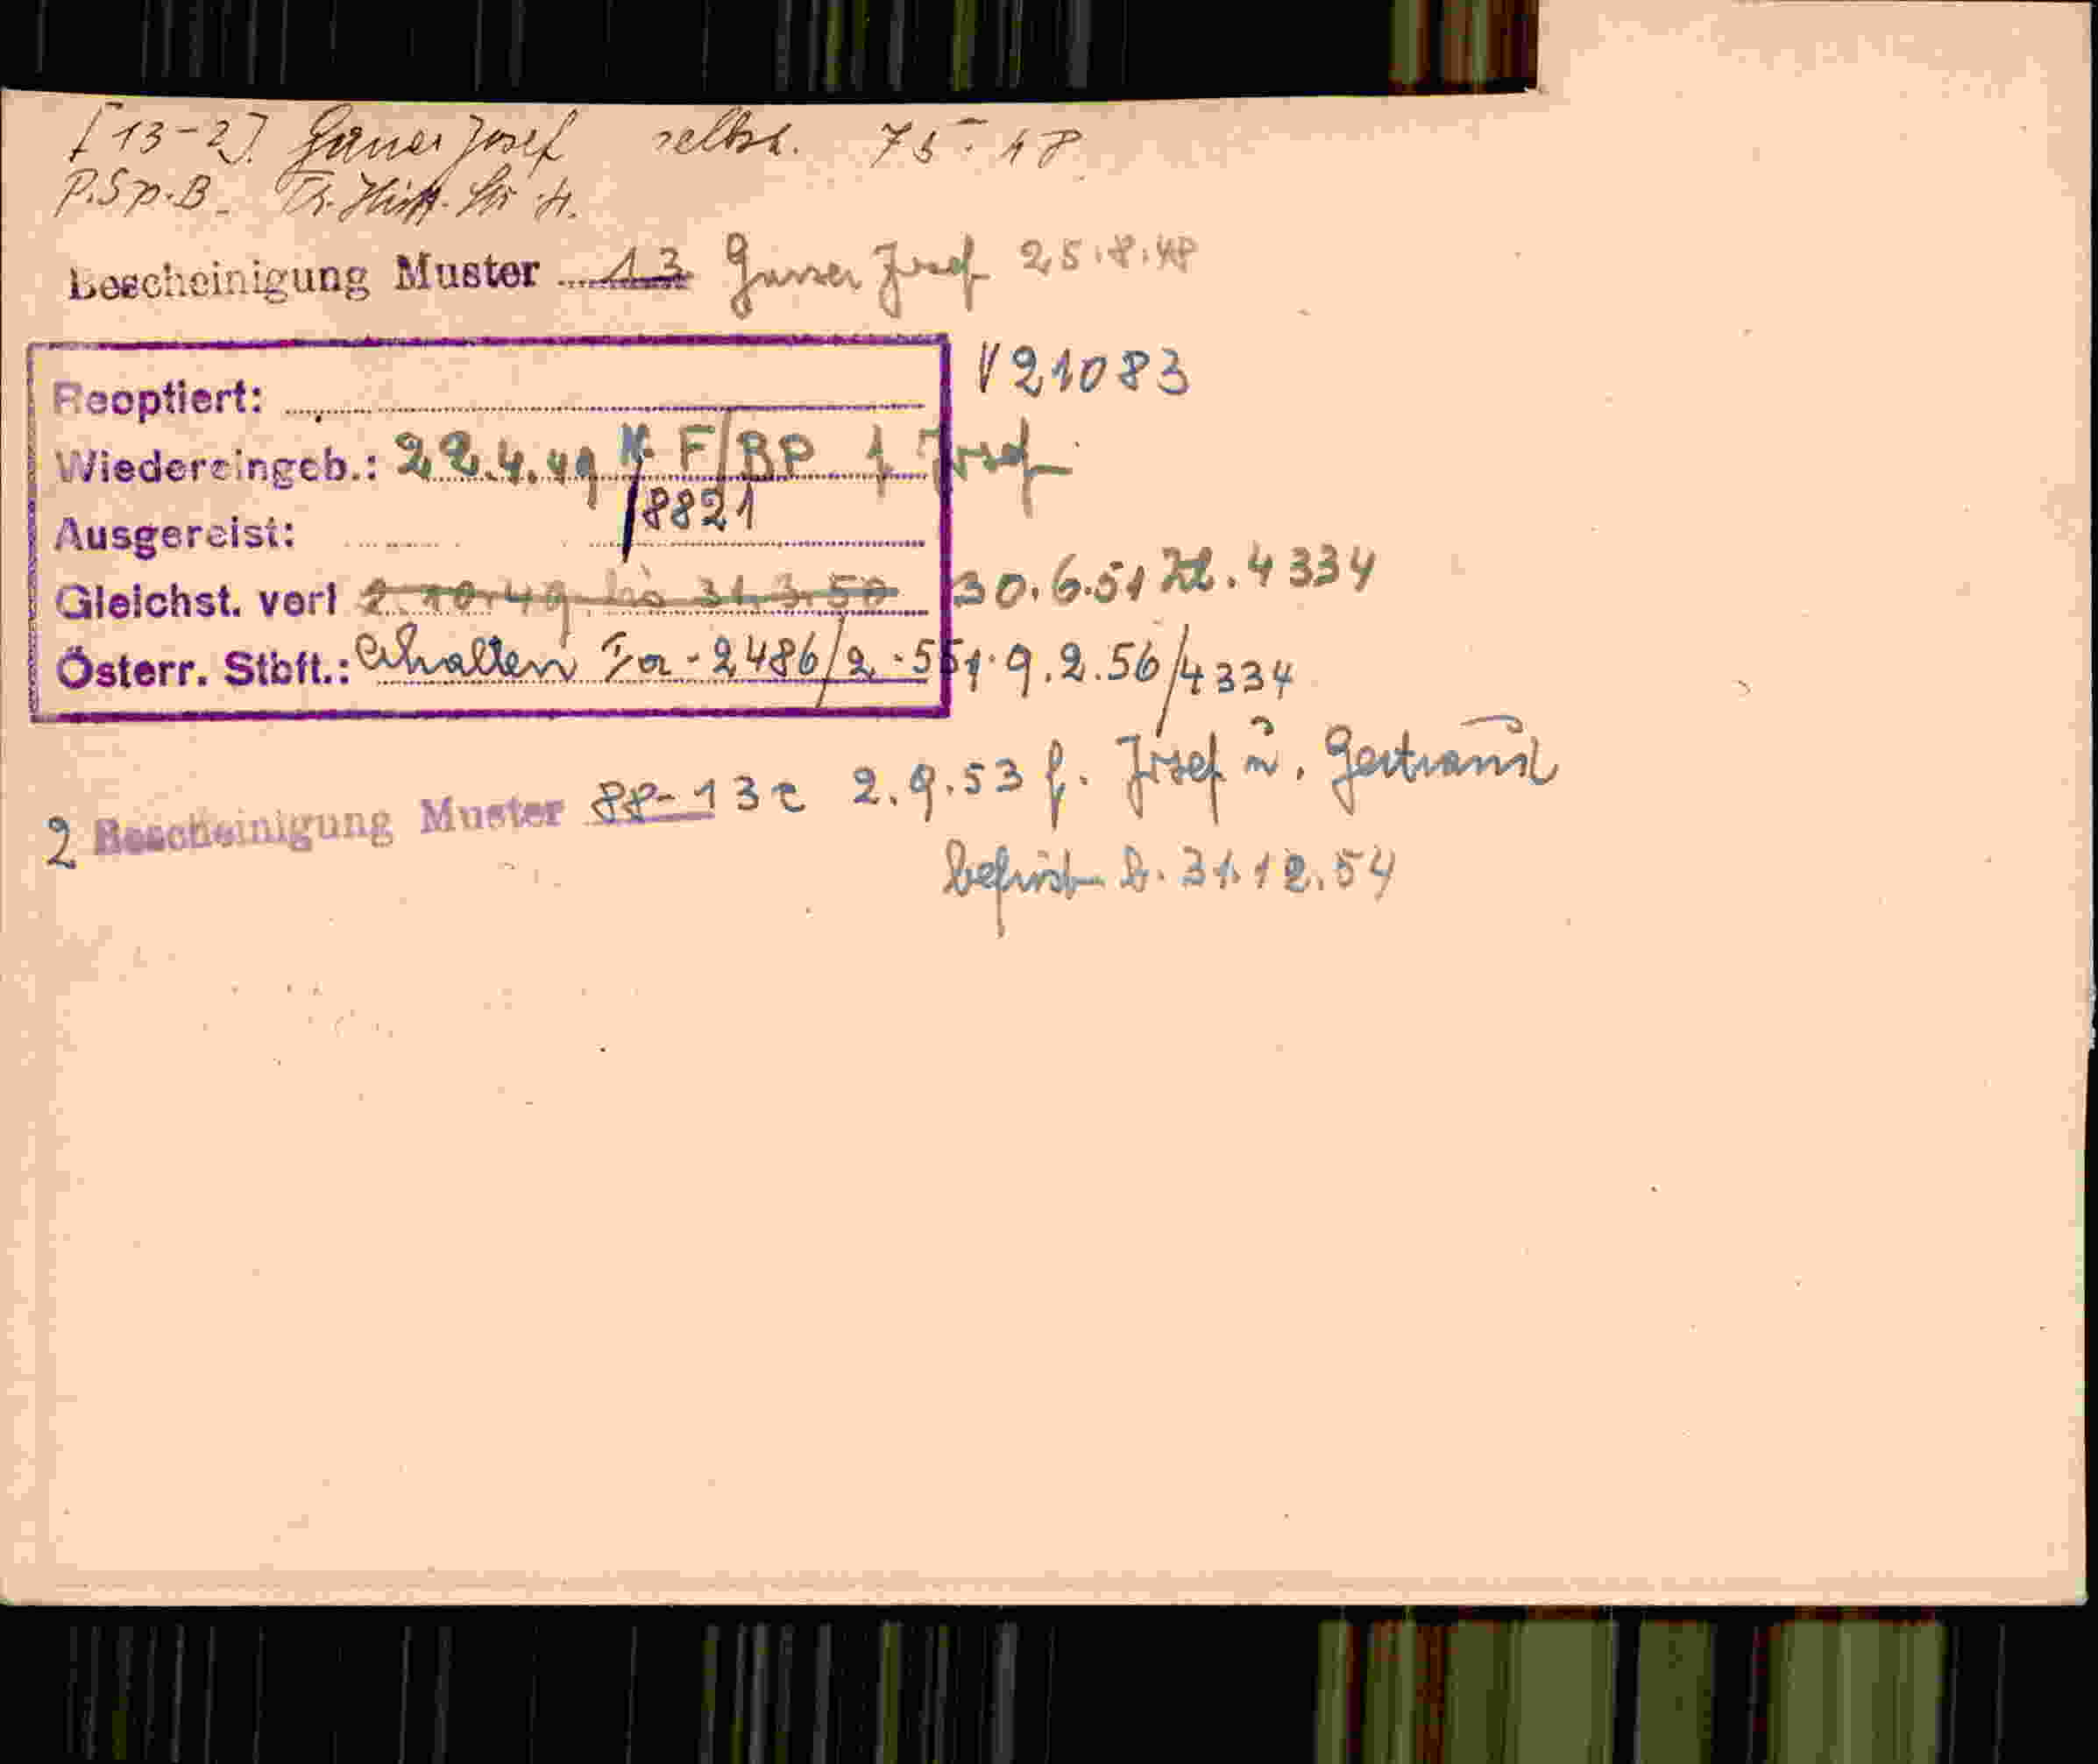 [13-2] Gasser Josef selbst. 75-48
P.Sp.B.
Bescheinigung Muster 13 Gasser Josef 25.8.48
Reoptiert: V 21083
Wiedereingeb.: 22.4.49 F/BP f Josef
/8821
Ausgereist:
Gleichst. verl 2.10.49 bis 31.3.50 30.6.51 Zl. 4334
Österr. Stbft.: erhalten Ia-2486/2-551. 9.2.56/4334
2 Bescheinigung Muster 88-13c 2.9.53 f. Josef u. Gertraud
befrist b. 31.12.54